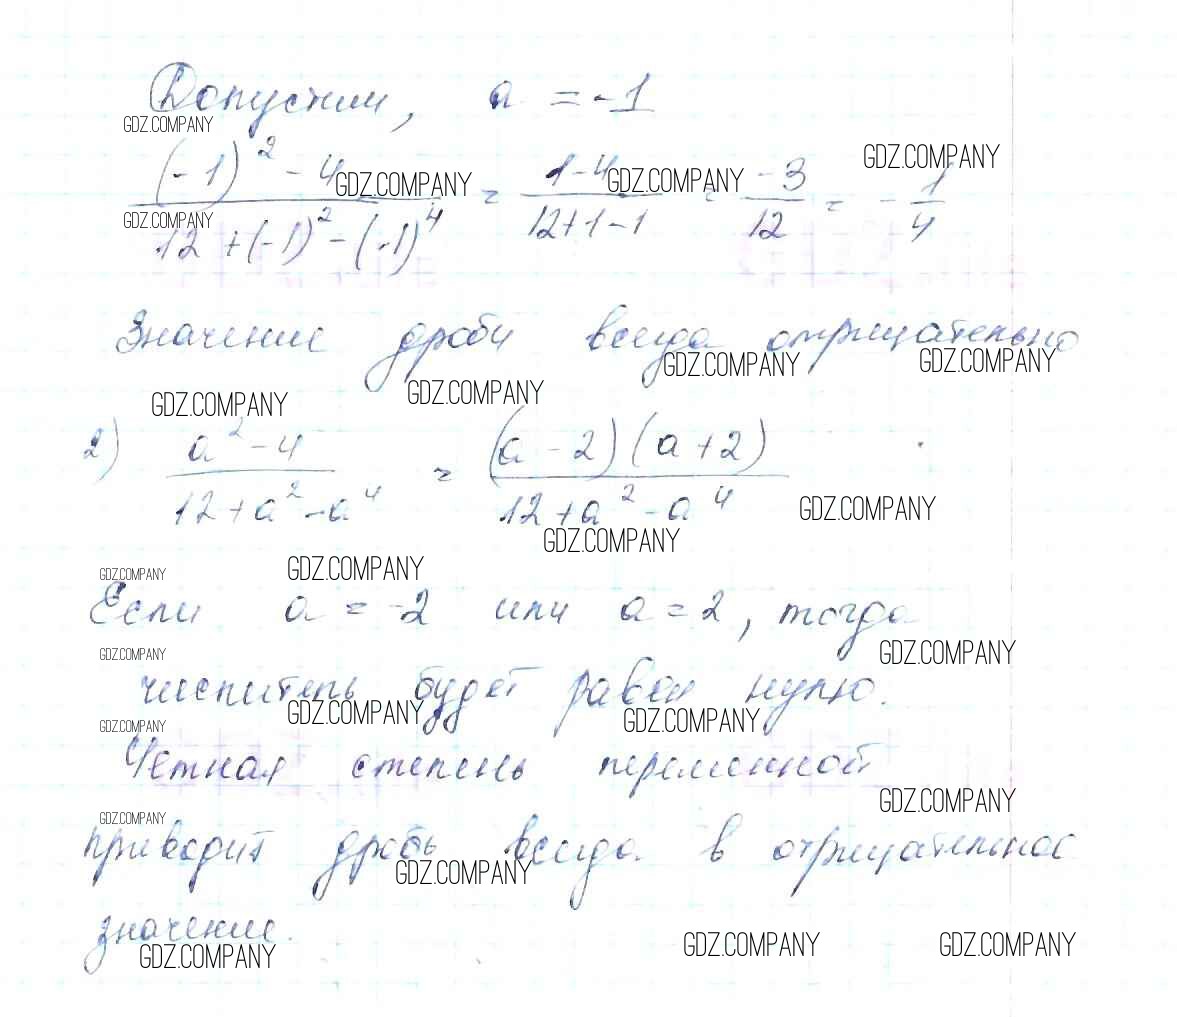 Допустим, a = -1
GDZ.COMPANY
GDZ.COMPANY
((-1)² - 4)/(12 + (-1)² - (-1)⁴) = (1-4)/(12+1-1) = -3/12 = -1/4
GDZ.COMPANY GDZ.COMPANY
GDZ.COMPANY
Значение дроби всегда отрицательно
GDZ.COMPANY GDZ.COMPANY
GDZ.COMPANY GDZ.COMPANY
2) (a² - 4)/(12 + a² - a⁴) = ((a - 2)(a + 2))/(12 + a² - a⁴)
GDZ.COMPANY
GDZ.COMPANY
GDZ.COMPANY GDZ.COMPANY
Если a = -2 или a = 2, тогда
GDZ.COMPANY GDZ.COMPANY
числитель будет равен нулю.
GDZ.COMPANY GDZ.COMPANY GDZ.COMPANY
Четная степень переменной
GDZ.COMPANY
GDZ.COMPANY
приводит дробь всегда в отрицательное
GDZ.COMPANY
значение.
GDZ.COMPANY GDZ.COMPANY GDZ.COMPANY